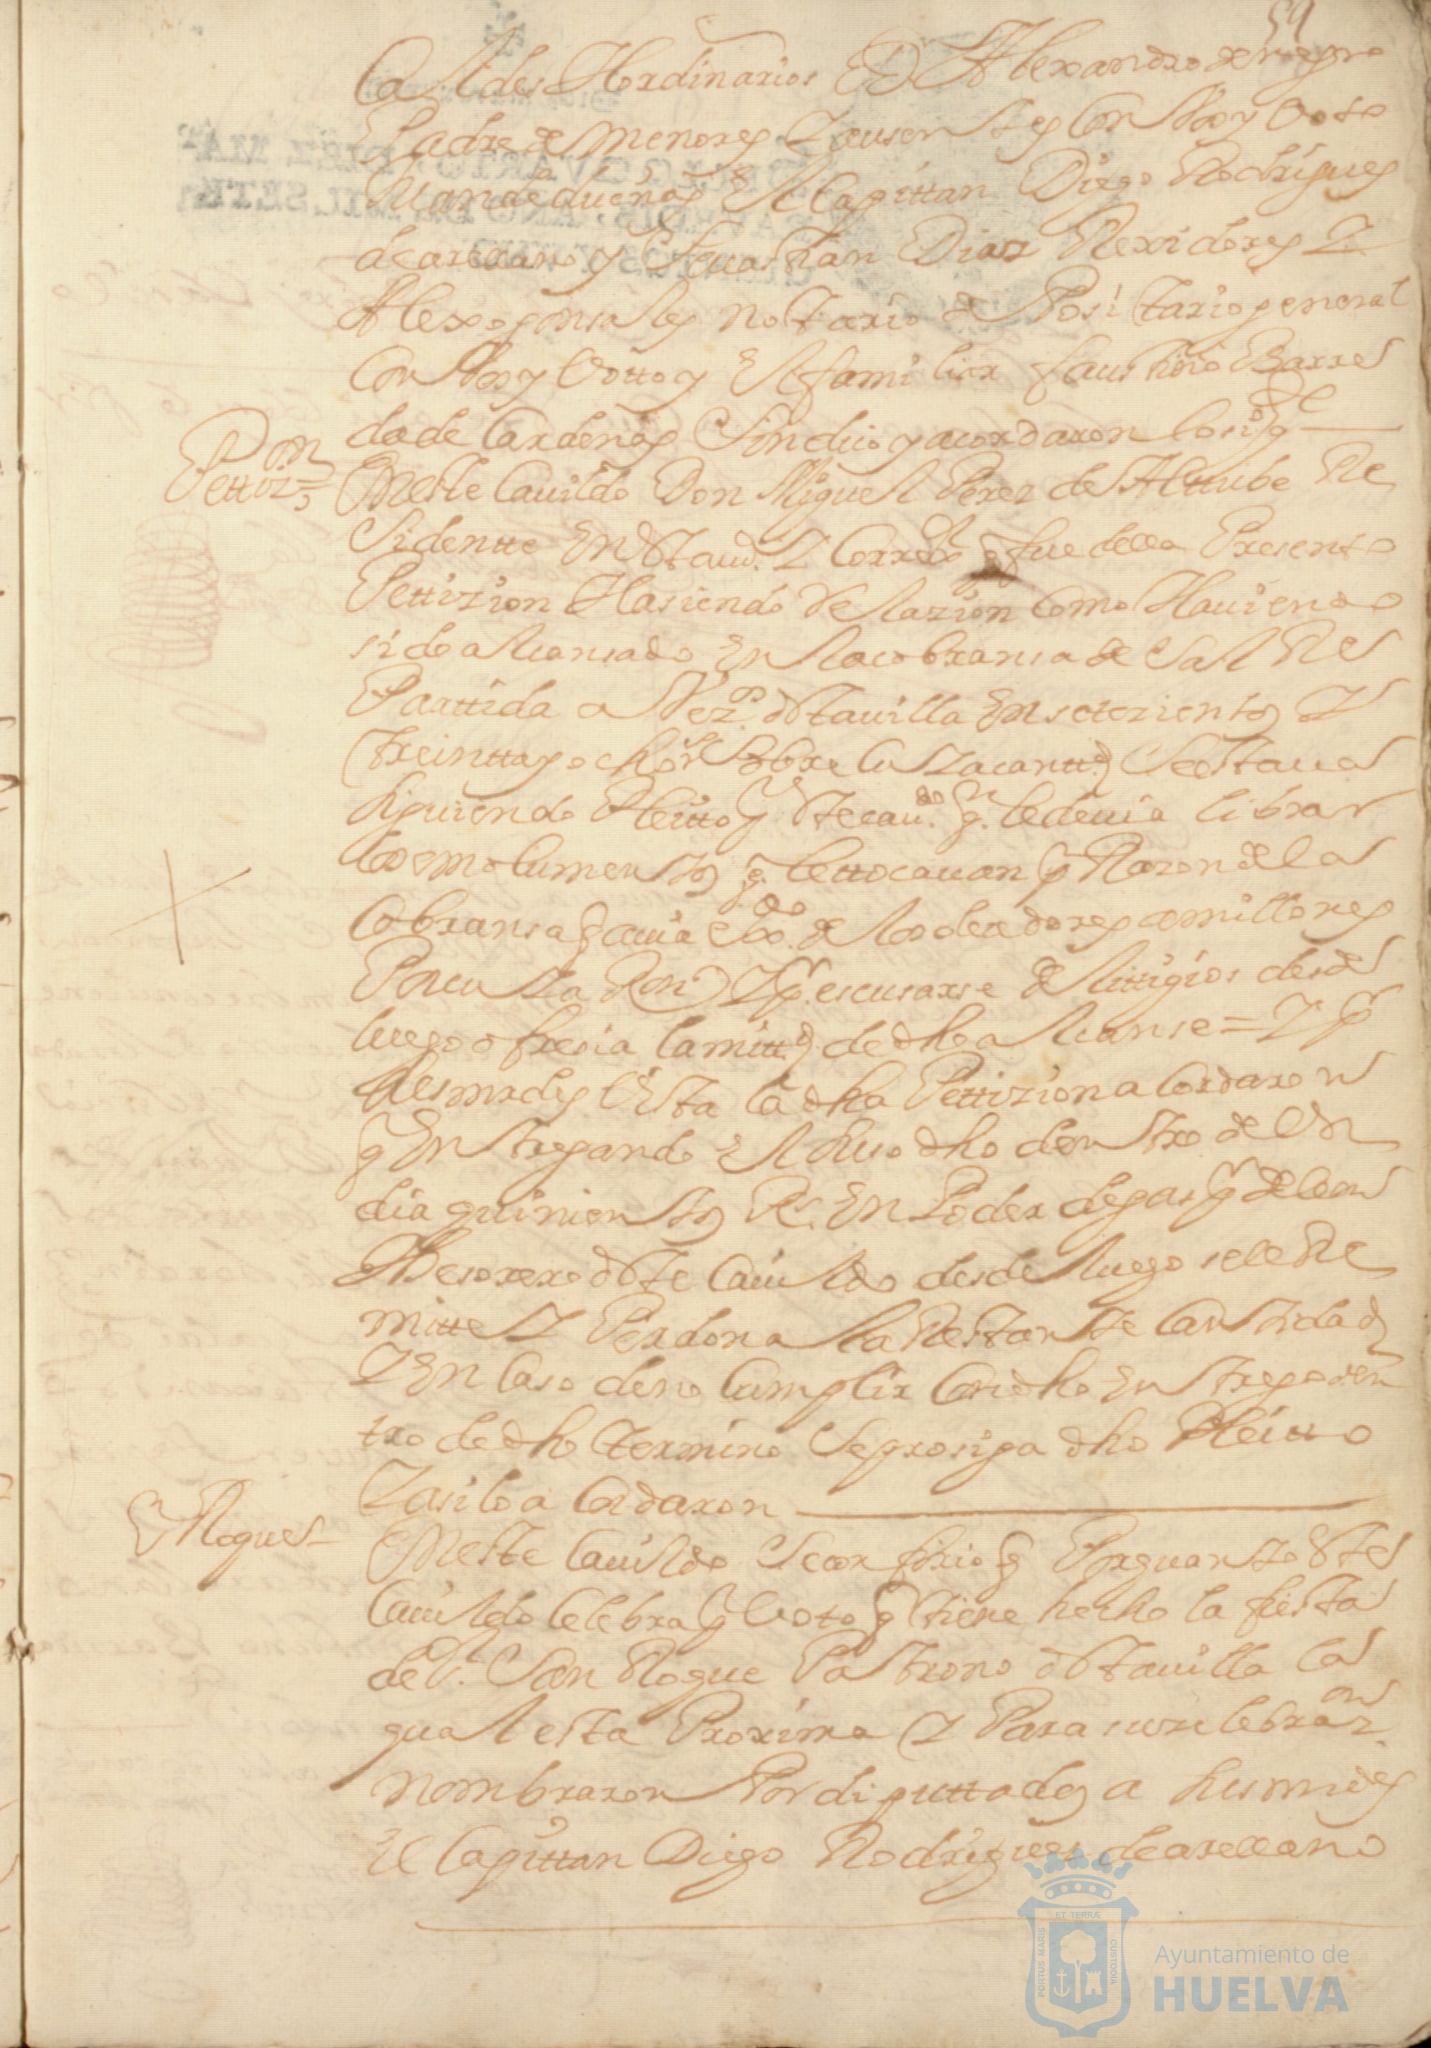 59
Calldes Hordinarios Y D Alexandro de negro
Padre de Menores Y ausentes Con Voz y Voto
Juan de la dueñas El Capittan Diego Rodrigues
de arellano y Seuasttian Dias Rexidores Y
Alexo gonsales nottario de Posittario general
Con Vos y Votto y El familiar faustino Barre
da de Cardenas Sindico y acordaron lo sigte
Pettizon
En este Cauildo Don Miguel Perez de Alttube Re
sidentte En dsta uª Y Corredor q fue della Presento
Pettizion Hasiendo Relazion Como Hauiendo
sido alcansado En la cobransa de Sal Re
Partida a Vezos dsta uilla En setezientos Y
treintta y ocho rs sobre cuia cantd Se estaua
siguiendo Pleitto y qste caudo q. le deuia librar
los emolumentos q. le ttocauan p Razon de la
Cobransa q auia eho de los deudores a millones
Por cuia Ron Y pª escusarse de littigios desde
luego ofresia la mittd de dho alcanse = Y pr
sus mrdes Vista la dha Pettizion acordaron
q Enttregando El suso dho dentro de Un
dia quinientos Rs. En Poder de gaspr de leon
Thesorero dste Cauildo desde luego se le Re
mitte Y Perdona la Restante Cantidad
Y En Caso de no Cumplir Con dho Enttrego den
tro de dho termino Se prosiga dho Pleitto
Y asi lo a Cordaron
S Roque
En este Cauildo Se confirio q Por quanto este
Cauildo Celebra p Votto q tiene hecho la fiesta
de Sr San Roque Pattrono dsta uilla la
qual esta Proxima Y Para su zelebraon
nombraron Por diputtados a sus mrdes
El Capittan Diego Rodrigues de arellano
PORTUS MARIS
ET TERRÆ
CUSTODIA
Ayuntamiento de
HUELVA